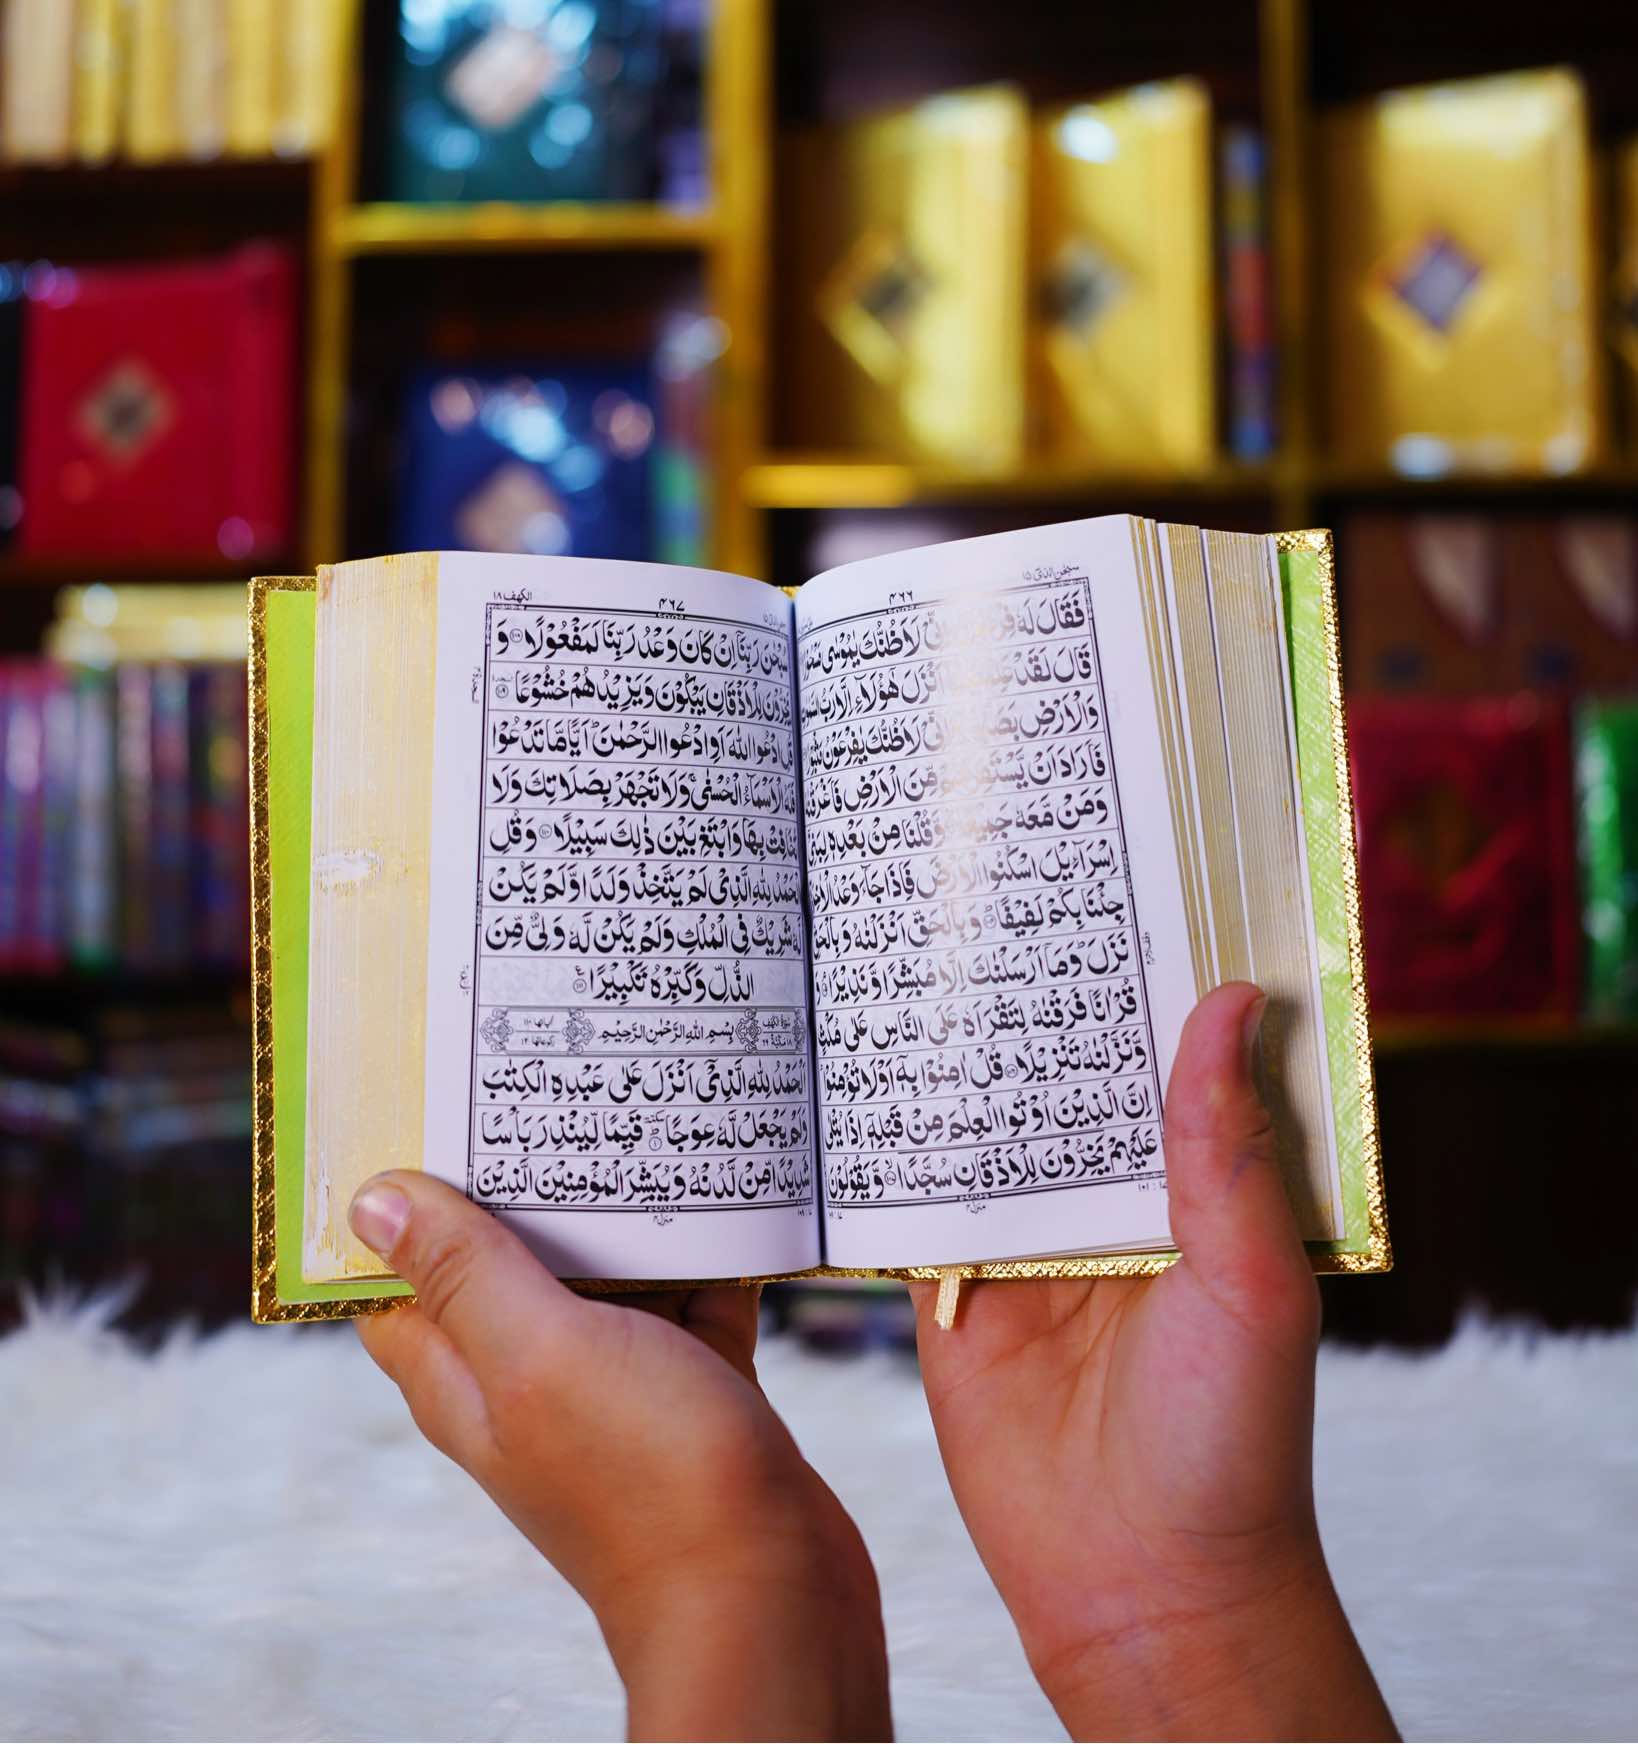 سبحن الذی ۱۵
۴۶۶
فَقَالَ لَهٗ لَاَظُنُّكَ یٰمُوْسٰی
قَالَ لَقَدْ اَنْزَلَ هٰۤؤُلَآءِ اِلَّا رَبُّ
وَالْاَرْضِ لَاَظُنُّكَ یٰفِرْعَوْنُ
فَاَرَادَ اَنْ یَّسْتَفِزَّهُمْ مِّنَ الْاَرْضِ فَاَغْرَقْنٰهُ
وَمَنْ مَّعَهٗ جَمِیْعًا وَّقُلْنَا مِنْۢ بَعْدِهٖ لِبَنِیْۤ
اِسْرَآءِیْلَ اسْكُنُوا الْاَرْضَ فَاِذَا جَآءَ وَعْدُ
جِئْنَا بِكُمْ لَفِیْفًا ۱۰۴ وَبِالْحَقِّ اَنْزَلْنٰهُ وَبِالْحَقِّ
نَزَلَ ؕ وَمَاۤ اَرْسَلْنٰكَ اِلَّا مُبَشِّرًا وَّنَذِیْرًا
قُرْاٰنًا فَرَقْنٰهُ لِتَقْرَاَهٗ عَلَی النَّاسِ عَلٰی مُكْثٍ
وَّنَزَّلْنٰهُ تَنْزِیْلًا ۱۰۶ قُلْ اٰمِنُوْا بِهٖۤ اَوْ لَا تُؤْمِنُوْا
اِنَّ الَّذِیْنَ اُوْتُوا الْعِلْمَ مِنْ قَبْلِهٖۤ اِذَا یُتْلٰی
عَلَیْهِمْ یَخِرُّوْنَ لِلْاَذْقَانِ سُجَّدًا ۱۰۷ وَّیَقُوْلُوْنَ
منزل۴
الكهف ۱۸
۴۶۷
سُبْحٰنَ رَبِّنَاۤ اِنْ كَانَ وَعْدُ رَبِّنَا لَمَفْعُوْلًا ۱۰۸ وَ
یَخِرُّوْنَ لِلْاَذْقَانِ یَبْكُوْنَ وَیَزِیْدُهُمْ خُشُوْعًا ۱۰۹
قُلِ ادْعُوا اللّٰهَ اَوِ ادْعُوا الرَّحْمٰنَ ؕ اَیًّا مَّا تَدْعُوْا
فَلَهُ الْاَسْمَآءُ الْحُسْنٰی ۚ وَلَا تَجْهَرْ بِصَلَاتِكَ وَلَا
تُخَافِتْ بِهَا وَابْتَغِ بَیْنَ ذٰلِكَ سَبِیْلًا ۱۱۰ وَقُلِ
الْحَمْدُ لِلّٰهِ الَّذِیْ لَمْ یَتَّخِذْ وَلَدًا وَّلَمْ یَكُنْ
لَّهٗ شَرِیْكٌ فِی الْمُلْكِ وَلَمْ یَكُنْ لَّهٗ وَلِیٌّ مِّنَ
الذُّلِّ وَكَبِّرْهُ تَكْبِیْرًا ۱۱۱
بِسْمِ اللّٰهِ الرَّحْمٰنِ الرَّحِیْمِ
اَلْحَمْدُ لِلّٰهِ الَّذِیْۤ اَنْزَلَ عَلٰی عَبْدِهِ الْكِتٰبَ
وَلَمْ یَجْعَلْ لَّهٗ عِوَجًا ۱ قَیِّمًا لِّیُنْذِرَ بَاْسًا
شَدِیْدًا مِّنْ لَّدُنْهُ وَیُبَشِّرَ الْمُؤْمِنِیْنَ الَّذِیْنَ
منزل۴